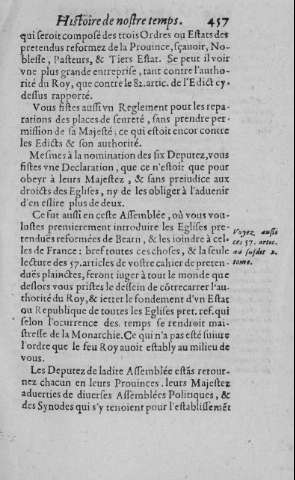 Histoire de nostre temps. 457
qui seroit composé des trois Ordres ou Estats des
pretendus reformez de la Prouince, sçauoir, No-
blesse, Pasteurs, & Tiers Estat. Se peut il voir
vne plus grande entreprise, tant contre l'autho-
rité du Roy, que contre le 82. artic. de l'Edict cy-
dessus rapporté.
Vous fistes aussi vn Reglement pour les repa-
rations des places de seureté, sans prendre per-
mission de sa Majesté, ce qui estoit encor contre
les Edicts & son authorité.
Mesmes à la nomination des six Deputez, vous
fistes vne Declaration, que ce n'estoit que pour
obeyr à leurs Majestez, & sans preiudice aux
droicts des Eglises, ny de les obliger à l'aduenir
d'en eslire plus de deux.
Ce fut aussi en ceste Assemblée, où vous vou-
lustes premierement introduire les Eglises pre-
tenduës reformées de Bearn, & les ioindre à cel-
les de France: bref toutes ces choses, & la seule
lecture des 57. articles de vostre cahier de preten-
dues plainctes, feront iuger à tout le monde que
deslors vous pristes le dessein de côtrecarrer l'au-
thorité du Roy, & ietter le fondement d'vn Estat
ou Republique de toutes les Eglises pret. ref. qui
selon l'ocurrence des temps se rendroit mai-
stresse de la Monarchie. Ce qui n'a pas esté suiure
l'ordre que le feu Roy auoit estably au milieu de
vous.
Les Deputez de ladite Assemblée estãs retour-
nez chacun en leurs Prouinces. leurs Majestez
aduerties de diuerses Assemblées Politiques, &
des Synodes qui s'y tenoient pour l'establissemẽt
Voyez aussi
ces 57. artic.
au susdit 2.
tome.